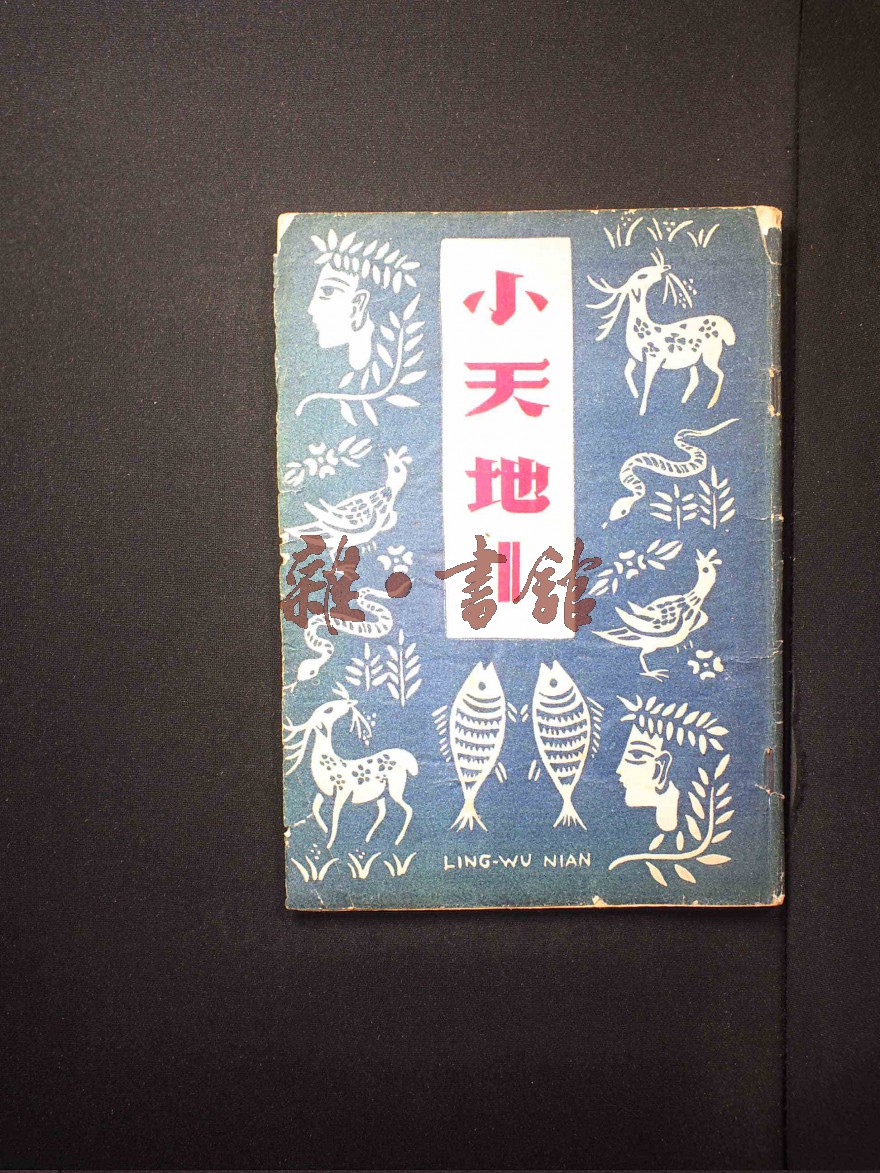 小天地
II
雜·書館
LING-WU NIAN